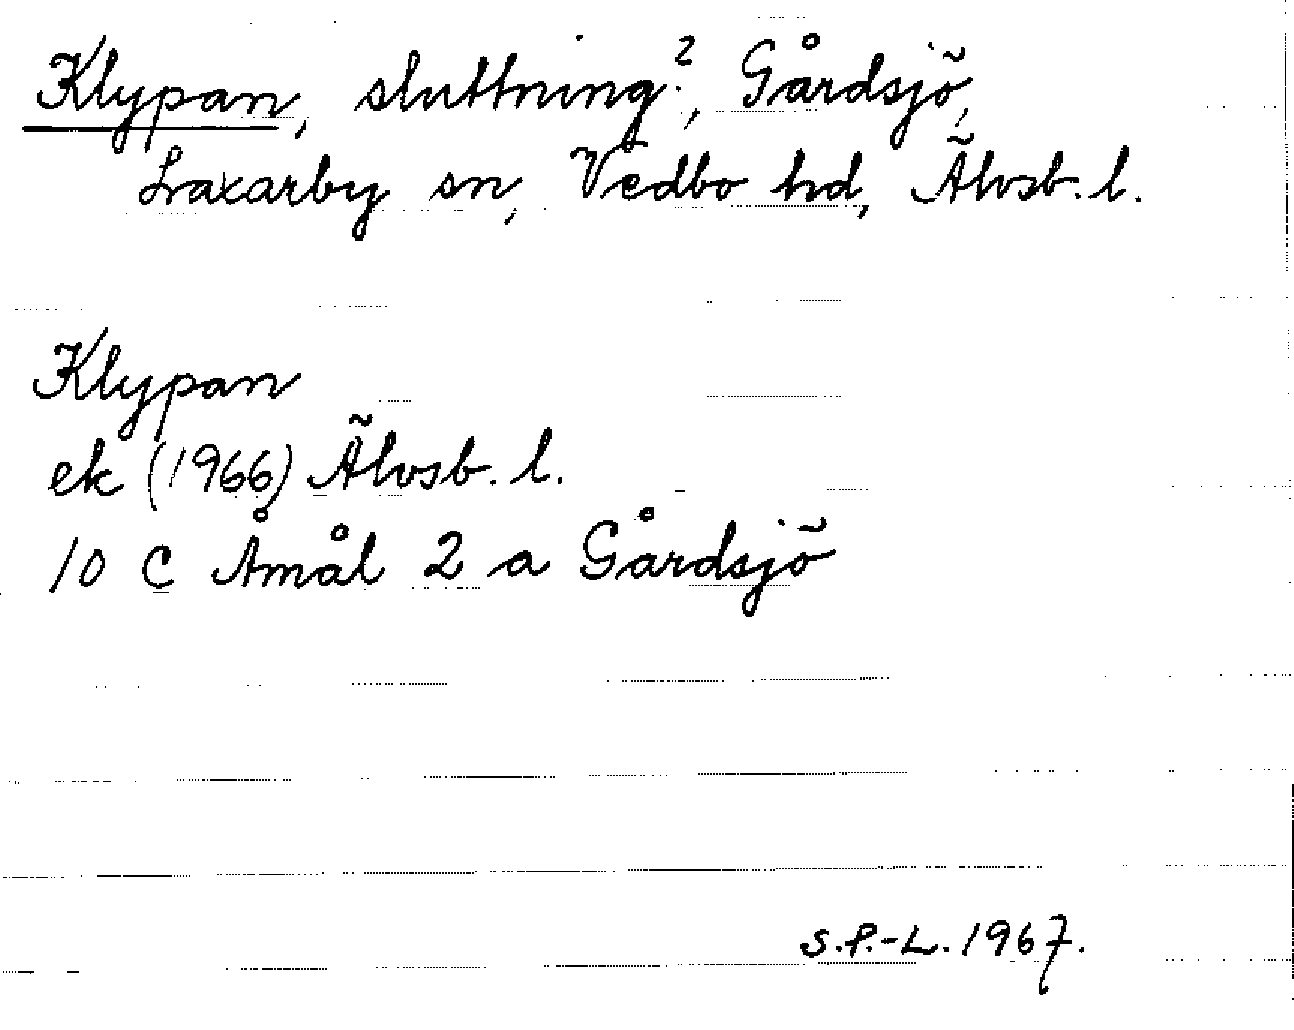 Klypan, sluttning?, Gårdsjö,
Laxarby sn, Vedbo hd, Älvsb. l.
Klypan
ek (1966) Älvsb. l.
10 C Åmål 2 a Gårdsjö
S.P.-L. 1967.